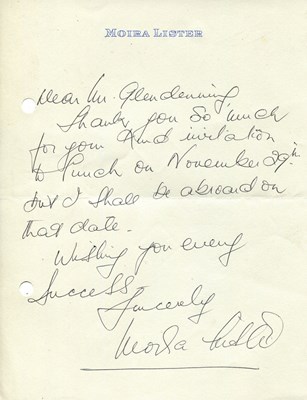 MOIRA LISTER
Dear Mr. Glendenning
Thank you so much
for your kind invitation
to lunch on November 29th
but I shall be abroad on
that date.
Wishing you every
success
Sincerely
Moira Lister